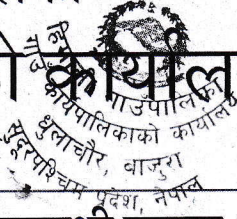 कार्याल
गाउँपालिका
गाउँ कार्यपालिकाको कार्यालय
धुलाचौर, बाजुरा
सुदूरपश्चिम प्रदेश, नेपाल